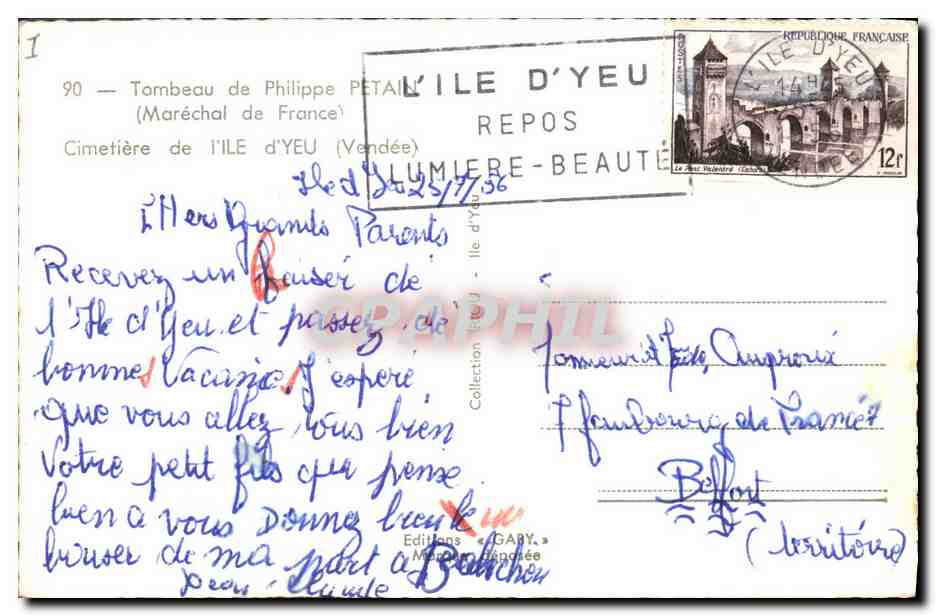 I
90 — Tombeau de Philippe PÉTAIN
(Maréchal de France)
Cimetière de l'ILE d'YEU (Vendée)
L'ILE D'YEU
REPOS
LUMIERE-BEAUTÉ
REPUBLIQUE FRANÇAISE
POSTES
Le Pont Valentré (Cahors)
12f
L'ILE D'YEU
Ile d'Yeu 25/7/56
Chers Grands Parents
Recevez un baiser de
l'Ile d'Yeu et passez de
bonnes Vacances J'espère
que vous allez tous bien
Votre petit fils qui pense
bien a vous Donnez bien le un
baiser de ma part a
Jean Claude
Collection YEU - Ile d'Yeu
Editions « GABY »
Marque déposée
CPAPHIL
7 faubourg de France
Belfort
(territoire)